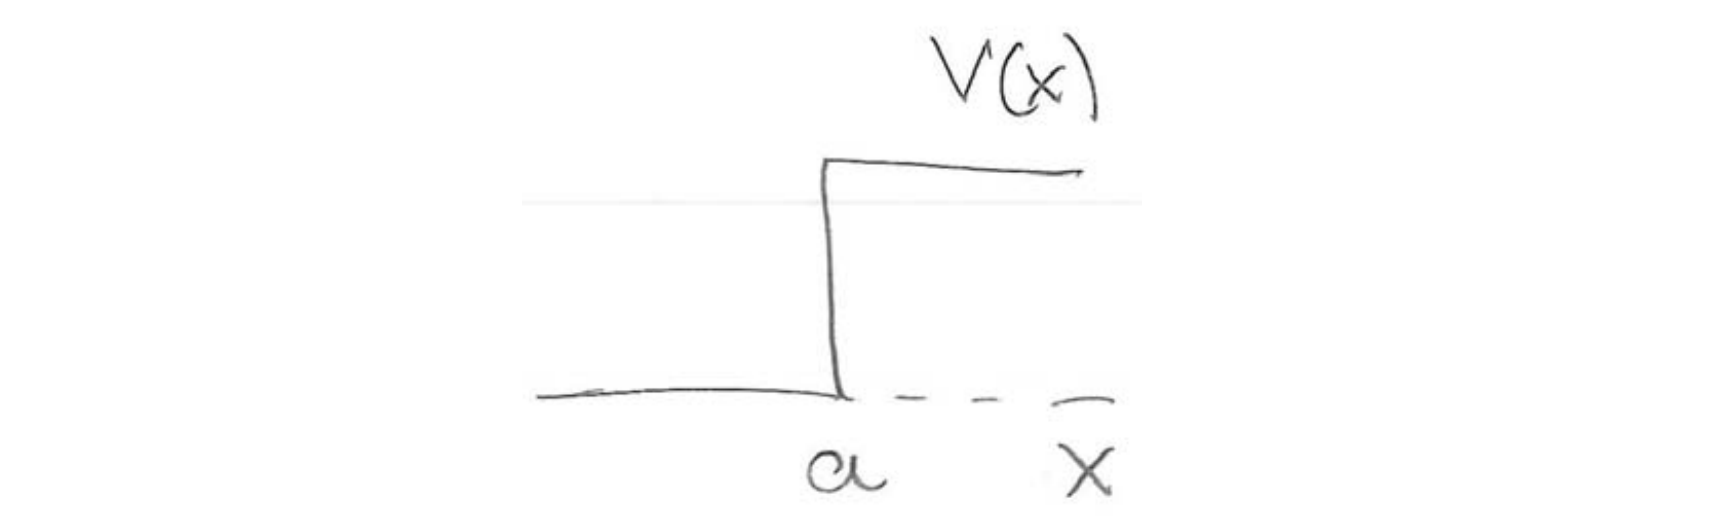 V(x)
a x